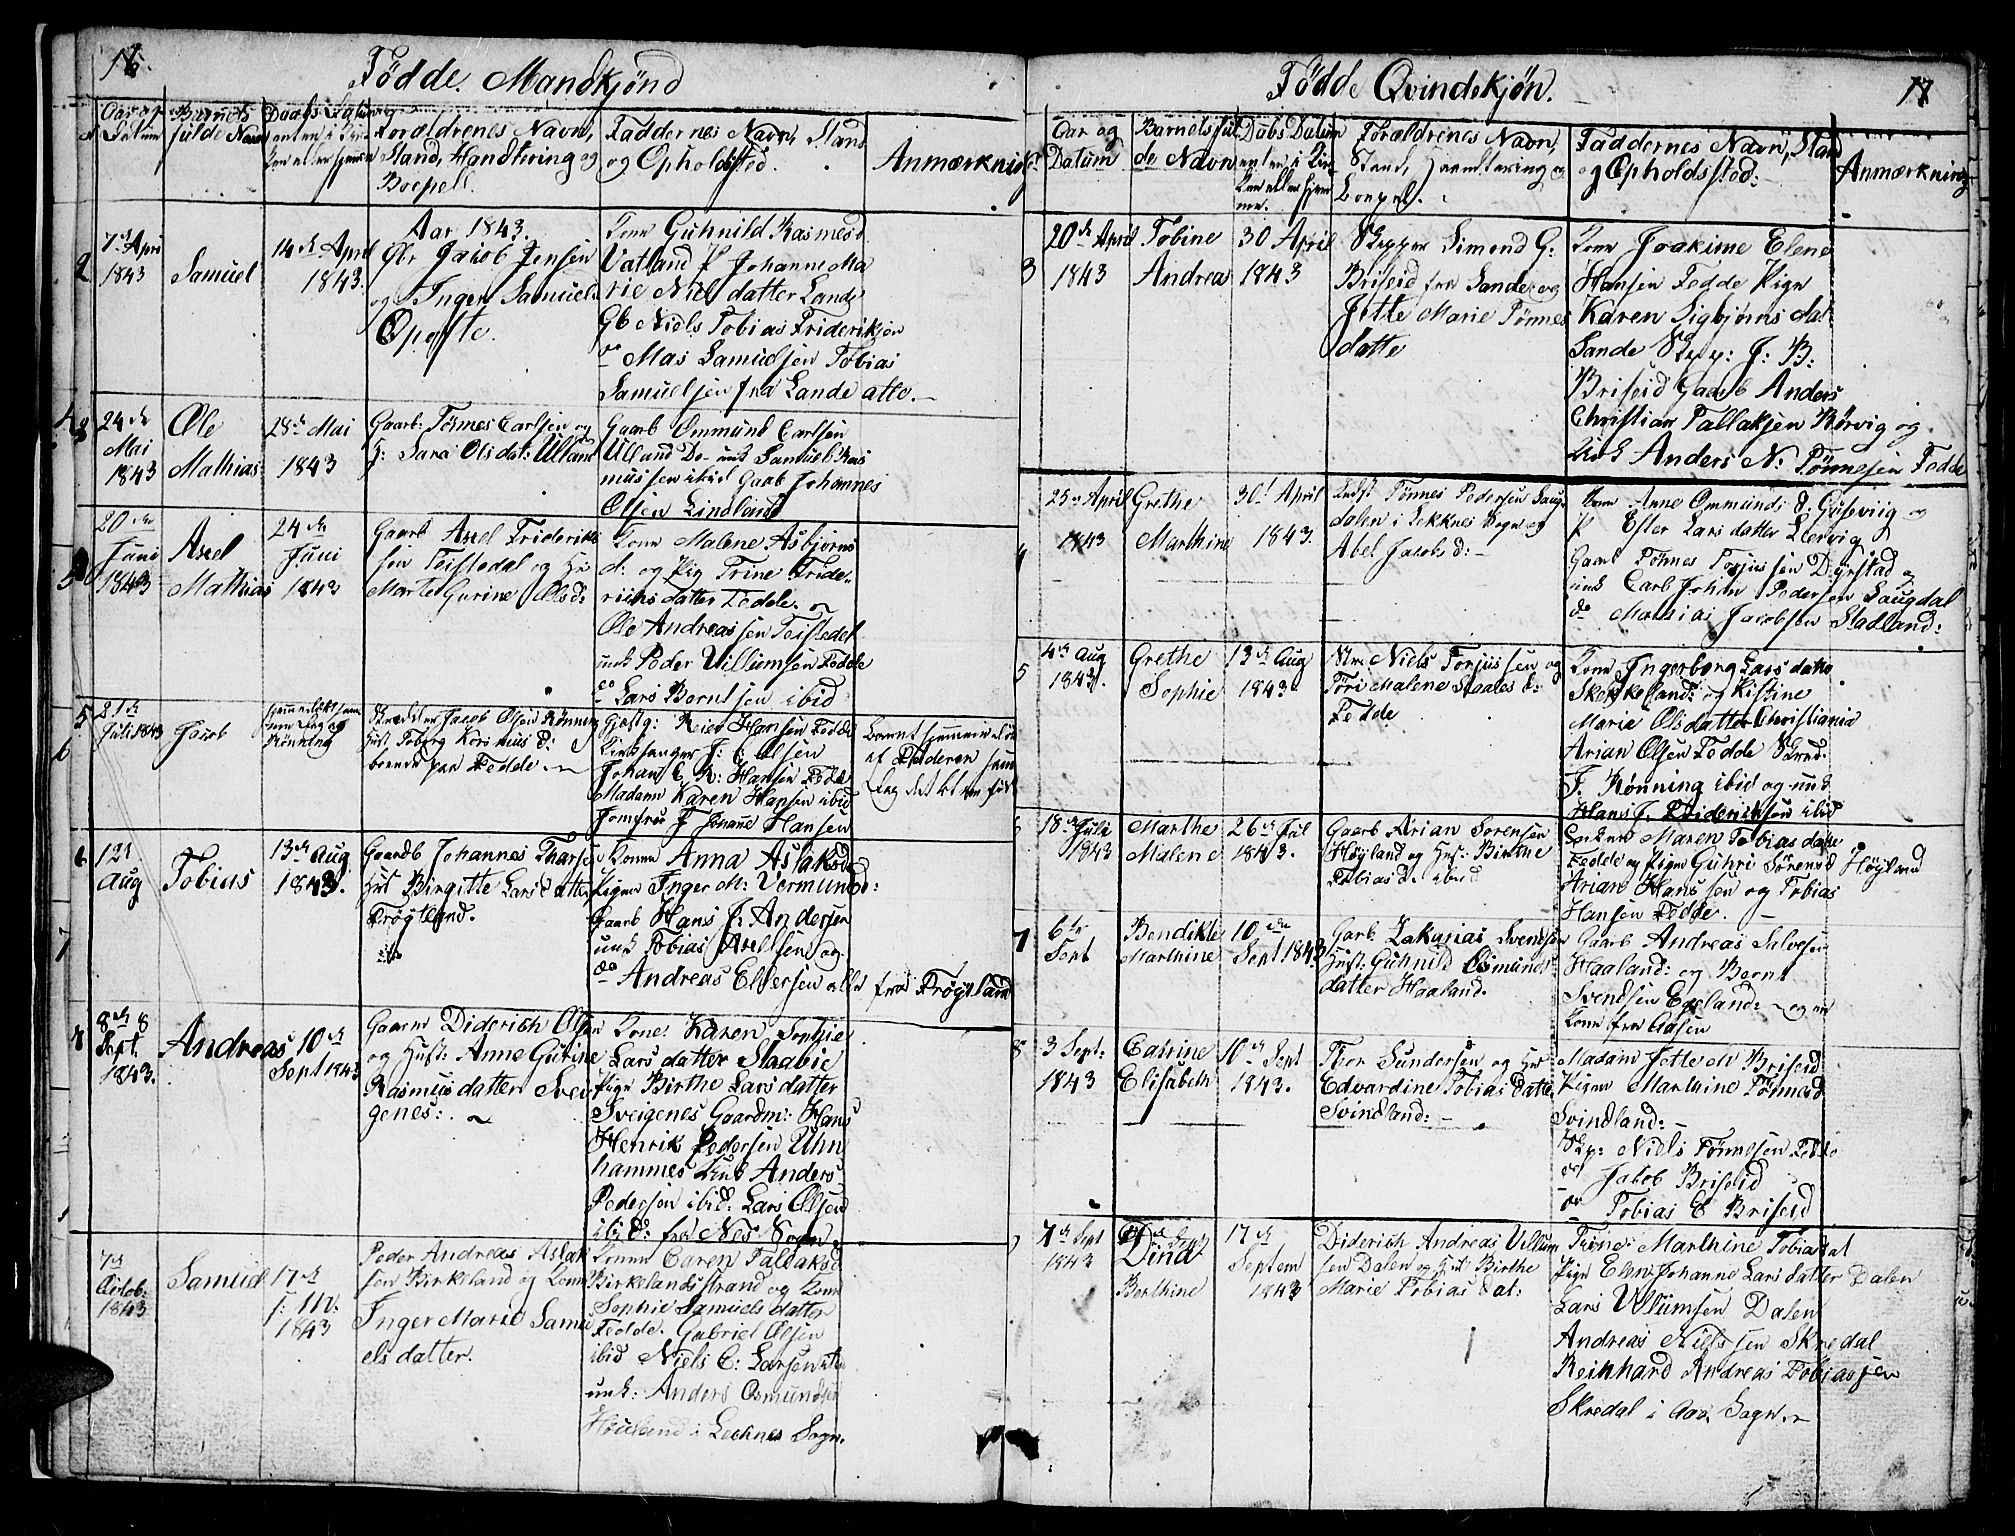 16.
Fødde Mandkjønd
Aar og Datum
Barnets fulde Navn
Daabs Datum enten i Kirken eller hjemme
Forældrenes Navn, Stand, Handtering og Boepæll.
Faddernes Navn, Stand og Opholdsted.
Anmærkning
2
7de April 1843
Samuel
14de April 1843.
Aar 1843.
Jacob Jensen
og Inger Samuels
Opofte.
Kone Guhnild Rasmusd
Vatland P Johanne Ma
rie Niels datter Lande
Gb Niels Tobias Frideriksen
do Mas Samuelsen Tobias
Samuelsen fra Lande atte.
24de Mai 1843
Ole Mathias
28de Mai 1843
Gaarb: Tønnes Carlsen og
H: Sara Ols dat: Ulland
Gaarb Ommund Carlsen
Ulland Do unk Samuel Ras
mussen ibid Gaab Johannes
Olsen Lindland
20de Juni 1843
Axel Mathias
24de Juni 1843
Gaarb Axel Friderik
sen Teistedal og Hu
Marte Gurine Olsd:
Kone Malene Asbjørns
d: og Pig Trine Fride
riks datter Fedde. og
Ole Andreas sen Teistedal
unk Peder Villumsen Fedde
do Lars Berntsen ibid
5
21de Juli 1843
Jacob
Rønning
Skrædder Jacob Olsen Rønning
Hust Toborg Rasmus d:
boende paa Fedde.
Gjestg: Reier Hansen Fedde
Kirkesanger J: C: Olsen
Johan C. R: Hansen Fedde
Madam Karen Hansen ibid
Jomfru P Johanne Hansen
Barnet hjemmedøbt
af Faderen sam
Dag det kom fød
6
12te Aug
Tobias
13de Aug 1843.
Gaardb Johannes Tharsen
Hust Birgitte Lars datter
Frøytland.
Kone Anna Aslaksd
Pigen Inger M: Vermund:
Gaarb Hans J. Andersen
unk Tobias Axelsen og
do Andreas Eliersen alle fra Frøytland
7
8de 8 Sept. 1843.
Andreas
10de Sept 1843
Gaarm Diderich Olsen
og Hust: Anne Gurine
Rasmus datter Svei
genes:
Kone: Karen Sophie
Lars datter Staabie
Pige Birthe Lars datter
Sveigenes Gaardm: Hans
Henrik Pedersen Uhn
hammes Unk Anders
Pedersen ibid: Lars Olsen
ibid: fra Nes Sogn.
7de Octob: 1843
Samuel
17de
1843
Peder Andreas Aslak
sen Birkeland og Kone
Inger Marie Samu
els datter.
Konen Caren Tallaksd
Birkelandsstrand og Kone
Sophie Samuels datter
Fedde. Gabriel Olsen
ibid Niels C: Larsen
unk: Anders Osmundsen
Houland i Lecknes Sogn.
17
Fødde Qvindekjøn.
Aar og Datum
Barnets fulde Navn
Daabs Datum enten i Kirken eller hjemme.
Forældrenes Navn, Stand, Haandtering og Boepel.
Faddernes Navn, Stand og Opholdsstod:
Anmærkning
3
20de April 1843
Tobine Andrea
30 April 1843
Skipper Simond G:
Briseid fra Sande og
Jette Marie Tønnes
datte
Kone Joakime Elene
Hansen Fedde Pige
Karen Sigbjørns dat
Sande Skip: J: B:
Briseid Gaarb Anders
Christian Tallaksen Rørvig og
Unk Anders N: Tønnesen Fedde
4
25de April 1843
Grethe Marthine
30t April 1843.
Indst Tønnes Pedersen Saug
dalen i Lekknes Sogn og
Abel Jacobs d:
Kone Anne Ommunds d. Guseviig og
P Ester Lars datter Leervig
Gaarb Tønnes Torjus sen Dyrstad og
unk Carl Johan Pedersen Saugdal
do Mathias Jacobsen Stadland:
5
4de Aug 1843.
Grethe Sophie
13de Aug 1843.
Str. Niels Torjus sen og
Tori Malene Staales d:
Fedde
Kone Ingerborg Lars datte
Skekkeland: og Kistine
Marie Ols datter Christiania
Arian Olsen Fedde Skred.
J. Rønning ibid og unk
Hans J. Frideriksen ibid
6
18de Juli 1843
Marthe Malene
26de Jul 1843.
Gaarb Arian Sørensen
Høyland og Hus: Birthe
Tobias d. ibid
Enken Maren Tobias datte
Fedde og Pigen Guhri Sørensd Høyland
Arian Hans sen og Tobias
Hansen Fedde.
7
6te Sept
Bendikte Marthine
10de Sept 1843
Garb. Zakarias Svendsen
Hust: Guhnild Osmunds
datter Haaland.
Gaarb Andreas Salvesen
Haaland: og Bernt
Svendsen Egeland: og en
Kone fra Aasen
8
3 Sept: 1843
Catrine Elisabeth
10de Sept 1843.
Thor Gundersen og Hu
Edvardine Tobias Datte
Svindland:
Madam Jette M Briseid
Pigen Marthine Tønnesd
Svindland:
Skp: Niels Tønnesen Fedde
do Jacob Briseid
do Tobias E Briseid
7de Sept 1843
Dina Berthine
17de Septem 1843
Diderich Andreas Villum
sen Dalen og Hus Birthe
Marie Tobias dat:
Trine Marthine Tobias dat
Pige Elen Johanne Lars datter Dalen
Lars Villumsen Dalen
Andreas Niels sen Skredal
Reinhard Andreas Tobiassen
Skredal i Aas Sogn.